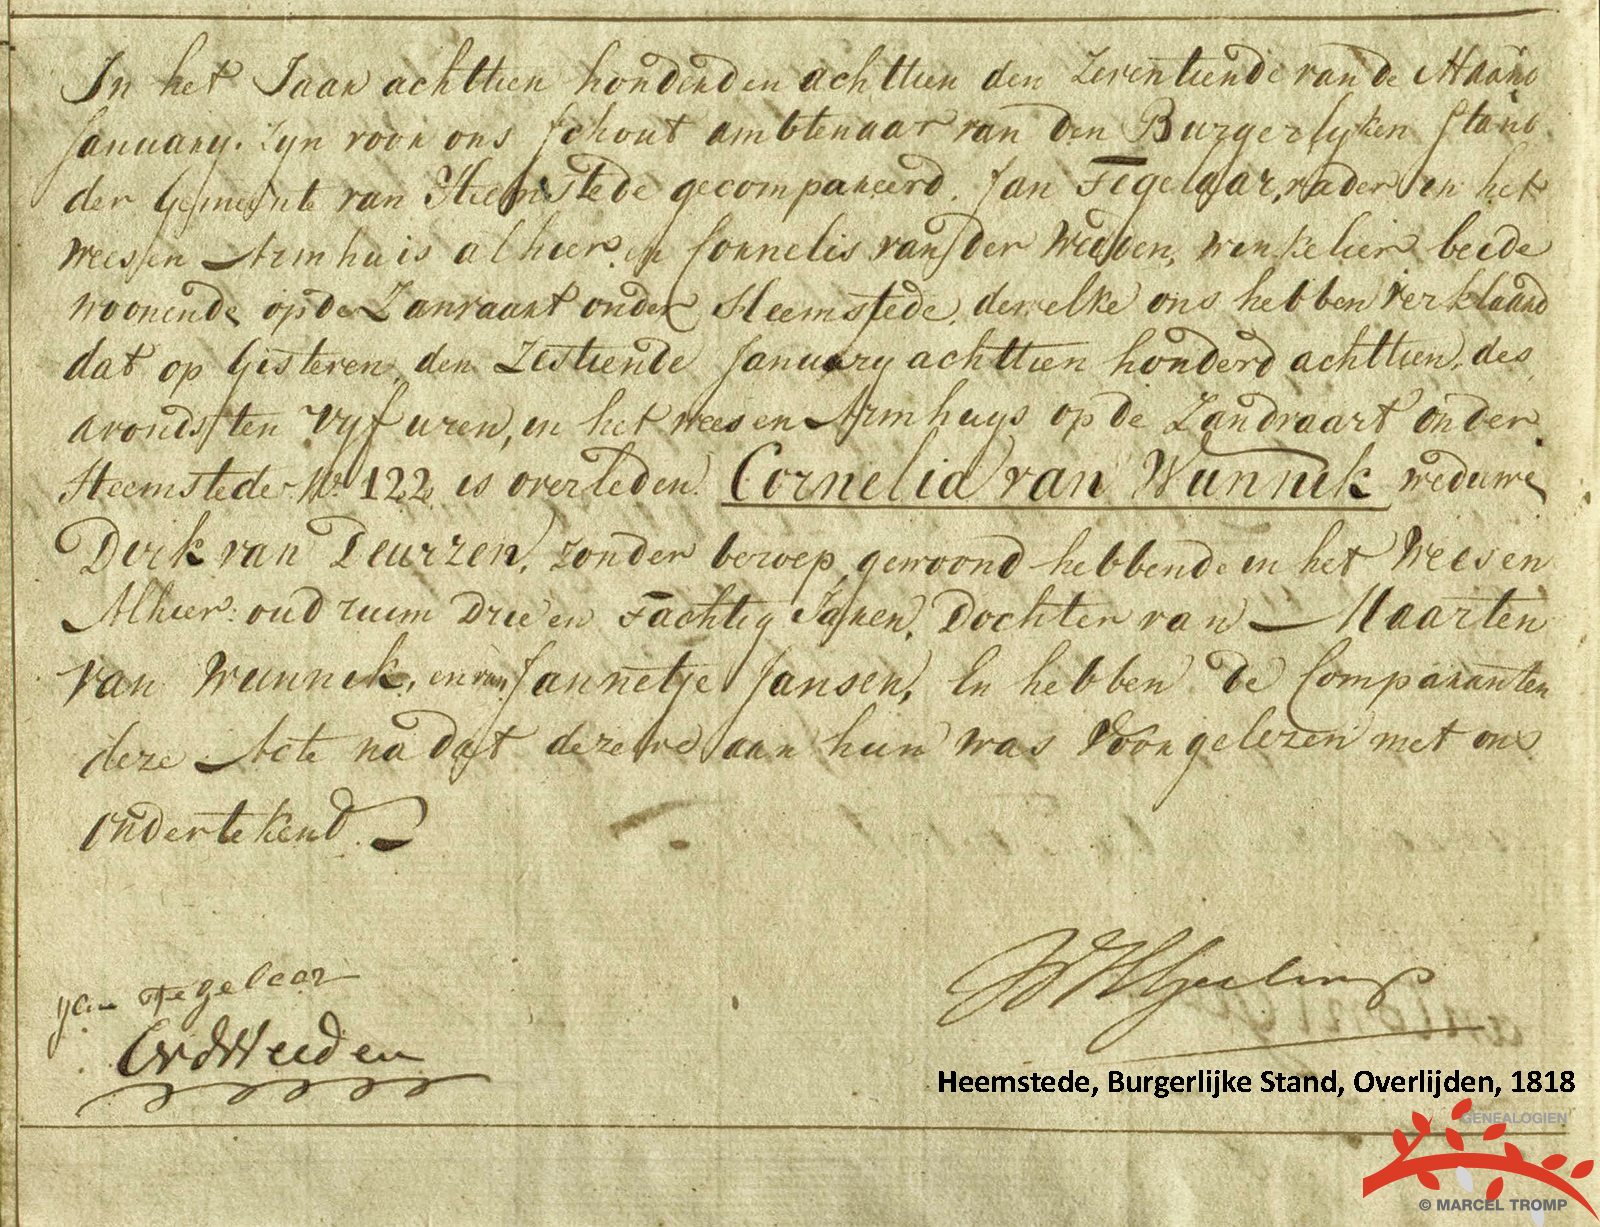 In het Jaar achttien honderd en achttien den Zeventiende van de Maand
January. Zyn voor ons Schout ambtenaar van den Burgerlyken Stand
der Gemeente van Heemstede gecompareerd. Jan Tegelaar, vader in het
Weesen Armhuis alhier. en Cornelis van der Weiden, winkelier beide
woonende op de Zanvaart onder Heemstede, dewelke ons hebben verklaard
dat op Gisteren den Zestiende January achttien honderd achttien, des
avonds ten Vyf uren, in het weesen Armhuys op de Zandvaart onder
Heemstede No. 122 is overleden. Cornelia van Wunnik weduwe
Dirk van Deurzen, zonder beroep, gewoond hebbende in het Weesen
Alhier: oud ruim Drie en Tachtig Jaren, Dochter van Maarten
van Wunnik, en van Jannetje Jansen, En hebben de Comparanten
deze Acte na dat dezelve aan hun was Voorgelezen met ons
ondertekend.
Jan Tegelaar
CvdWeiden
Heemstede, Burgerlijke Stand, Overlijden, 1818
GENEALOGIEN
© MARCEL TROMP